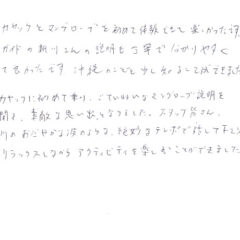 カヤックとマングローブを初めて体験できて楽しかったです
ガイドの新川さんの説明も丁寧で分かりやすく
て良かったです 沖縄のことを少し知ることができました
カヤックに初めて乗り、ていねいなマングローブ説明を
聞き、素敵な思い出となりました。スタッフ皆さん、
川のおだやかな波のような、絶妙なテンポで話して下さり
リラックスしながらアクティビティを楽しむことができました